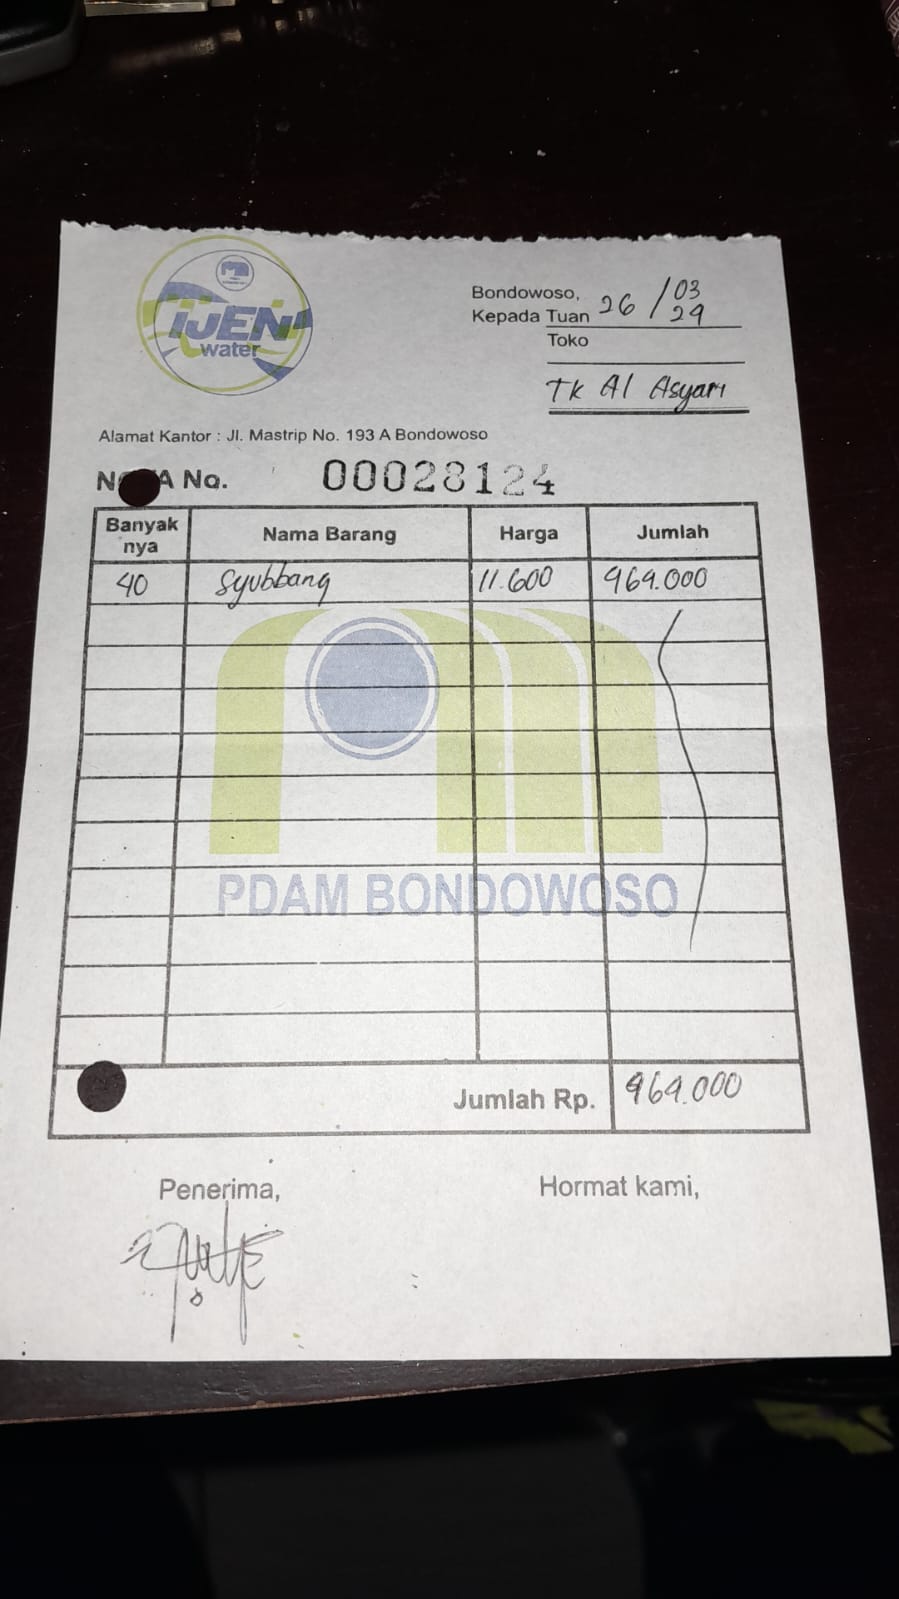 IJEN
water
Bondowoso, 26/03
Kepada Tuan 29
Toko
Tk Al Asyari
Alamat Kantor : Jl. Mastrip No. 193 A Bondowoso
NOTA No. 00028124
Banyak nya Nama Barang Harga Jumlah
40 Syubbang 11.600 969.000
PDAM BONDOWOSO
Jumlah Rp. 969.000
Penerima, Hormat kami,